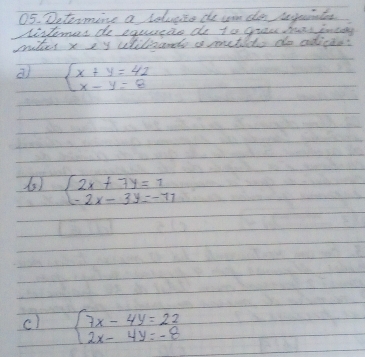 05. Determine a solução de um dos seguintes
sistemas de equação de 1o grau nas incóg
nitas x e y utilizando o método da adição:
a) { x + y = 42
x - y = 8
b) { 2x + 7y = 1
-2x - 3y = -11
c) { 7x - 4y = 22
2x - 4y = -8